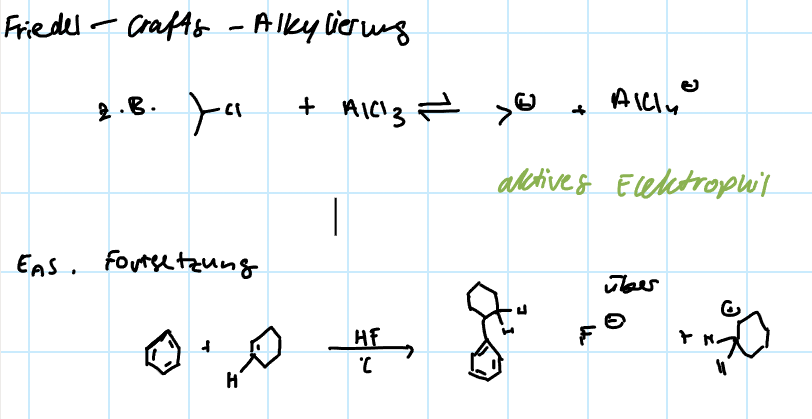 Friedel - Crafts - Alkylierung
z.B. Cl + AlCl3 ⇌ ⊕ + AlCl4⊖
aktives Elektrophil
EAS. Fortsetzung
über
+ H HF °C H H F⊖ + H H ⊕